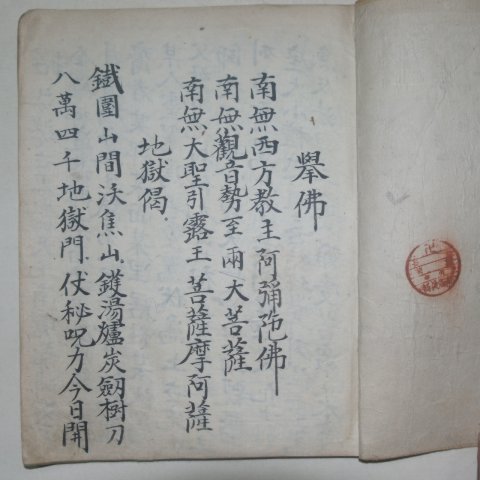 擧佛
南無西方教主阿彌陀佛
南無觀音勢至兩大菩薩
南無大聖引露王菩薩摩阿薩
地獄偈
鐵圍山間沃焦山鑊湯爐炭劔樹刀
八萬四千地獄門仗秘呪力今日開